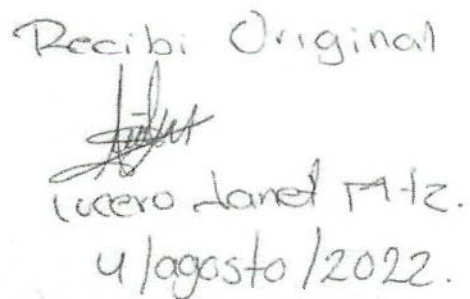 Recibi Original
Lucero Janet Mtz.
4/agosto/2022.